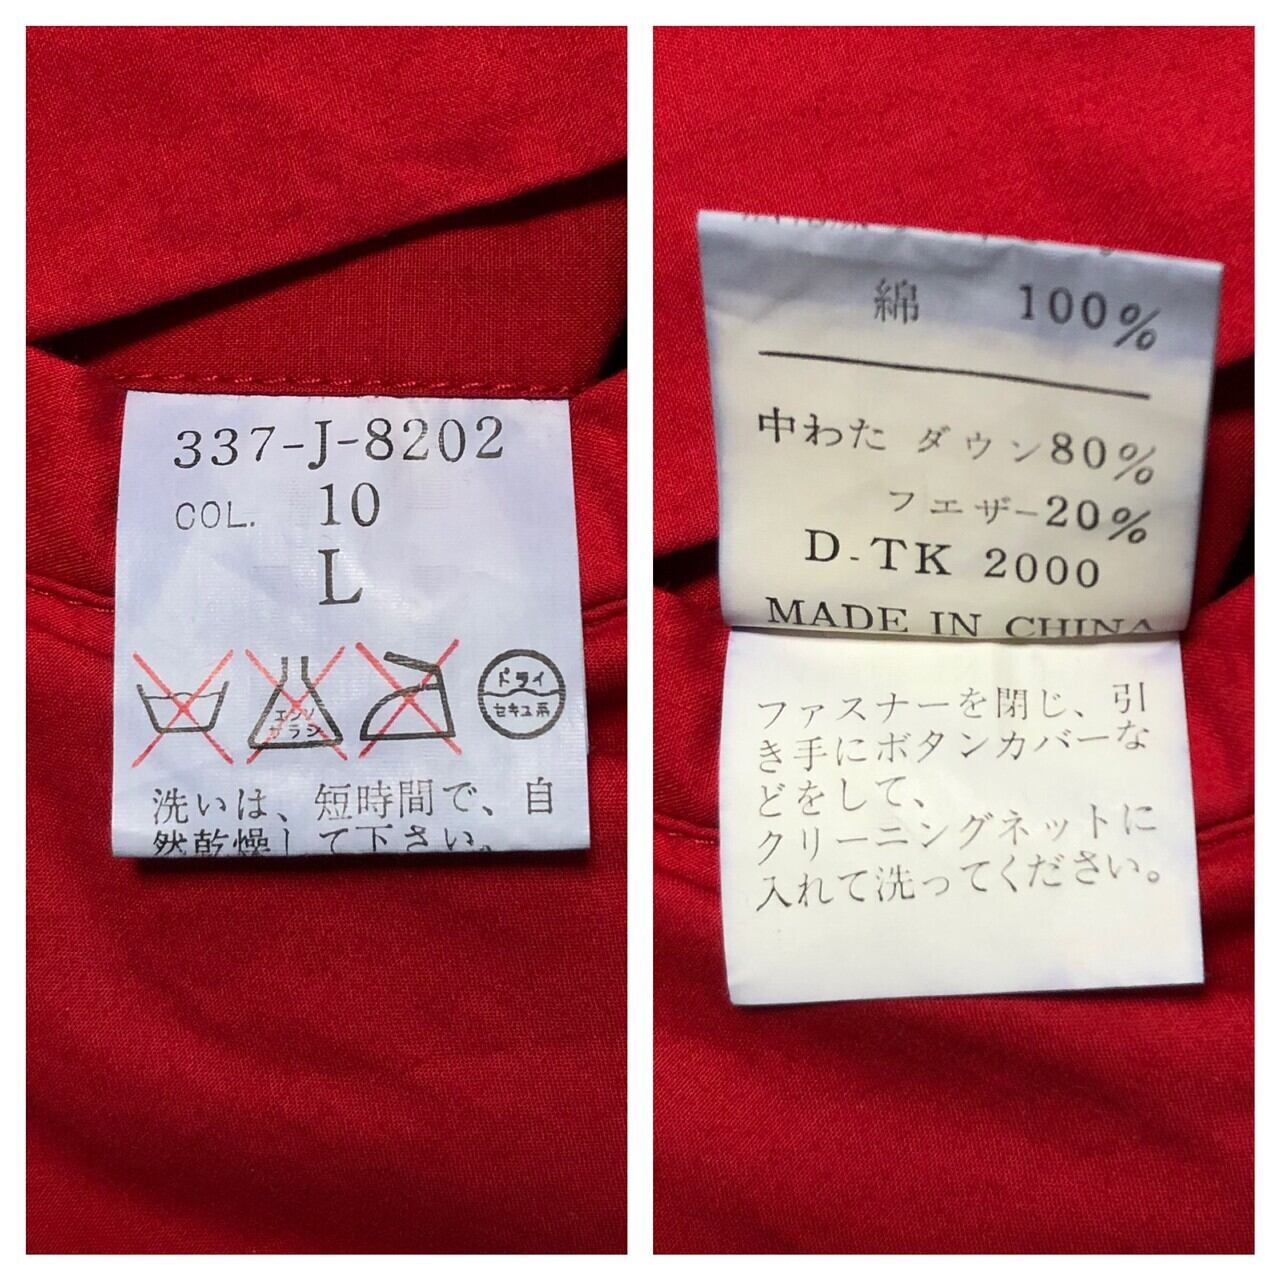 337-J-8202
COL. 10
L
エンソ
サラシ
ドライ
セキユ系
洗いは、短時間で、自
然乾燥して下さい。
綿 100%
中わた ダウン80%
フェザー20%
D-TK 2000
MADE IN CHINA
ファスナーを閉じ、引
き手にボタンカバーな
どをして、
クリーニングネットに
入れて洗ってください。